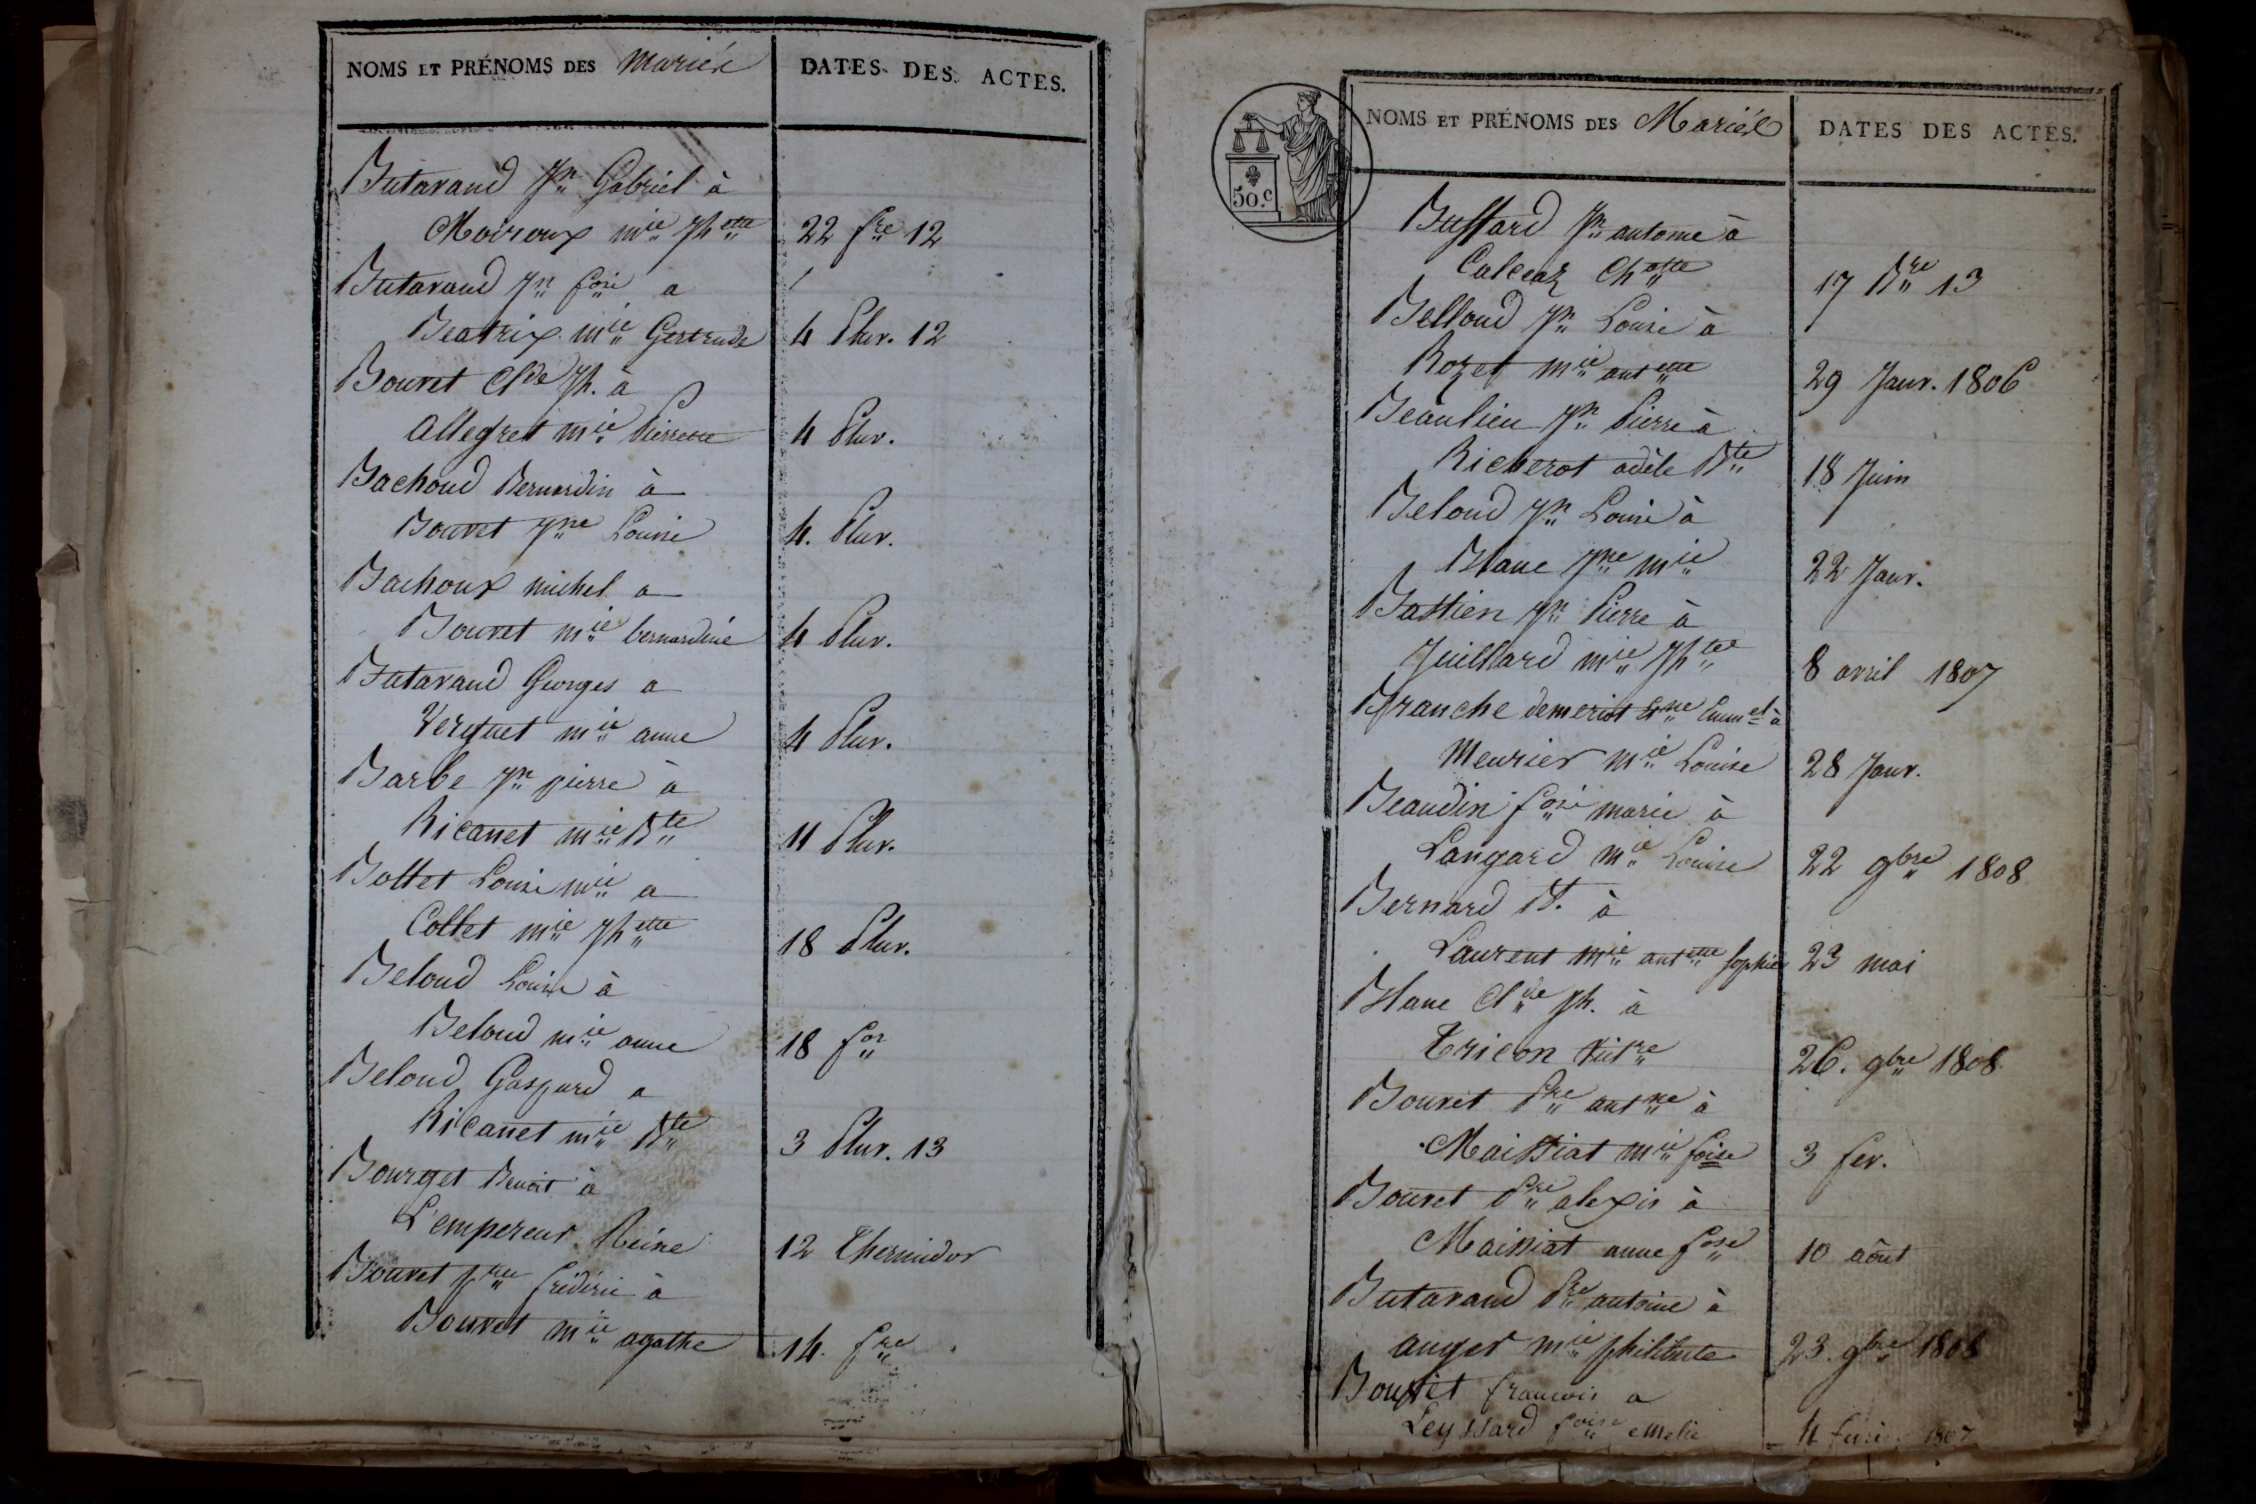 NOMS ET PRÉNOMS DES Mariés
DATES DES ACTES.
Butavand Jn Gabriel à
Moiroux mie Jhette 22 fre 12
Butavand Jn fois a
Beatrix mie Gertrude 4 Pluv. 12
Bouvet Clde Jh. à
Allegret mie Pierrette 4 Pluv.
Bachoud Bernardin à
Bouvet Jne Louise 4. Pluv.
Bachoux michel a
Bouvet mie bernardine 4 Pluv.
Butavand Georges a
Verguet mie anne 4 Pluv.
Barbe Jn pierre à
Ricanet mie Bte 11 Pluv.
Bottet Louis mie a
Collet mie Jhette 18 Pluv.
Beloud Louis à
Beloud mie anne 18
Beloud Gaspard a
Ricanet mie Bte 3 Pluv. 13
Bourget Benoit à
L'empereur Reine 12 Thermidor
Bouvet frédéric à
Bouvet mie agathe 14. fre
NOMS ET PRÉNOMS DES Mariés
DATES DES ACTES.
50.c
Buffard Jn antoine à
Chotte 17 Bre 13
Belloud Jn Louis à
Rozet mie antette 29 Janv. 1806
Beaulieu Jn Pierre à
Richerot adèle Bte 18 Juin
Beloud Jn Louis à
Blanc Jne mie 22 Janv.
Bastien Jn Pierre à
Juillard mie Jhte 8 avril 1807
Branche demeriot Emmel à
Meurier mie Louise 28 Janv.
Beaudin fois marie à
Langard mie Louise 22 9bre 1808
Bernard Bt. à
Laurent mie antette sophie 23 mai
Blanc Clde Jh. à
Tricon Victre 26. 9bre 1808
Bouvet Pre antne à
Maissiat mie foise 3 fev.
Bouvet Pre alexis à
Maissiat anne fose 10 août
Butavand Pre antoine à
auger mie philiberte 23. 9bre 1808
francois a
Leyssard foise emelie 4 1807